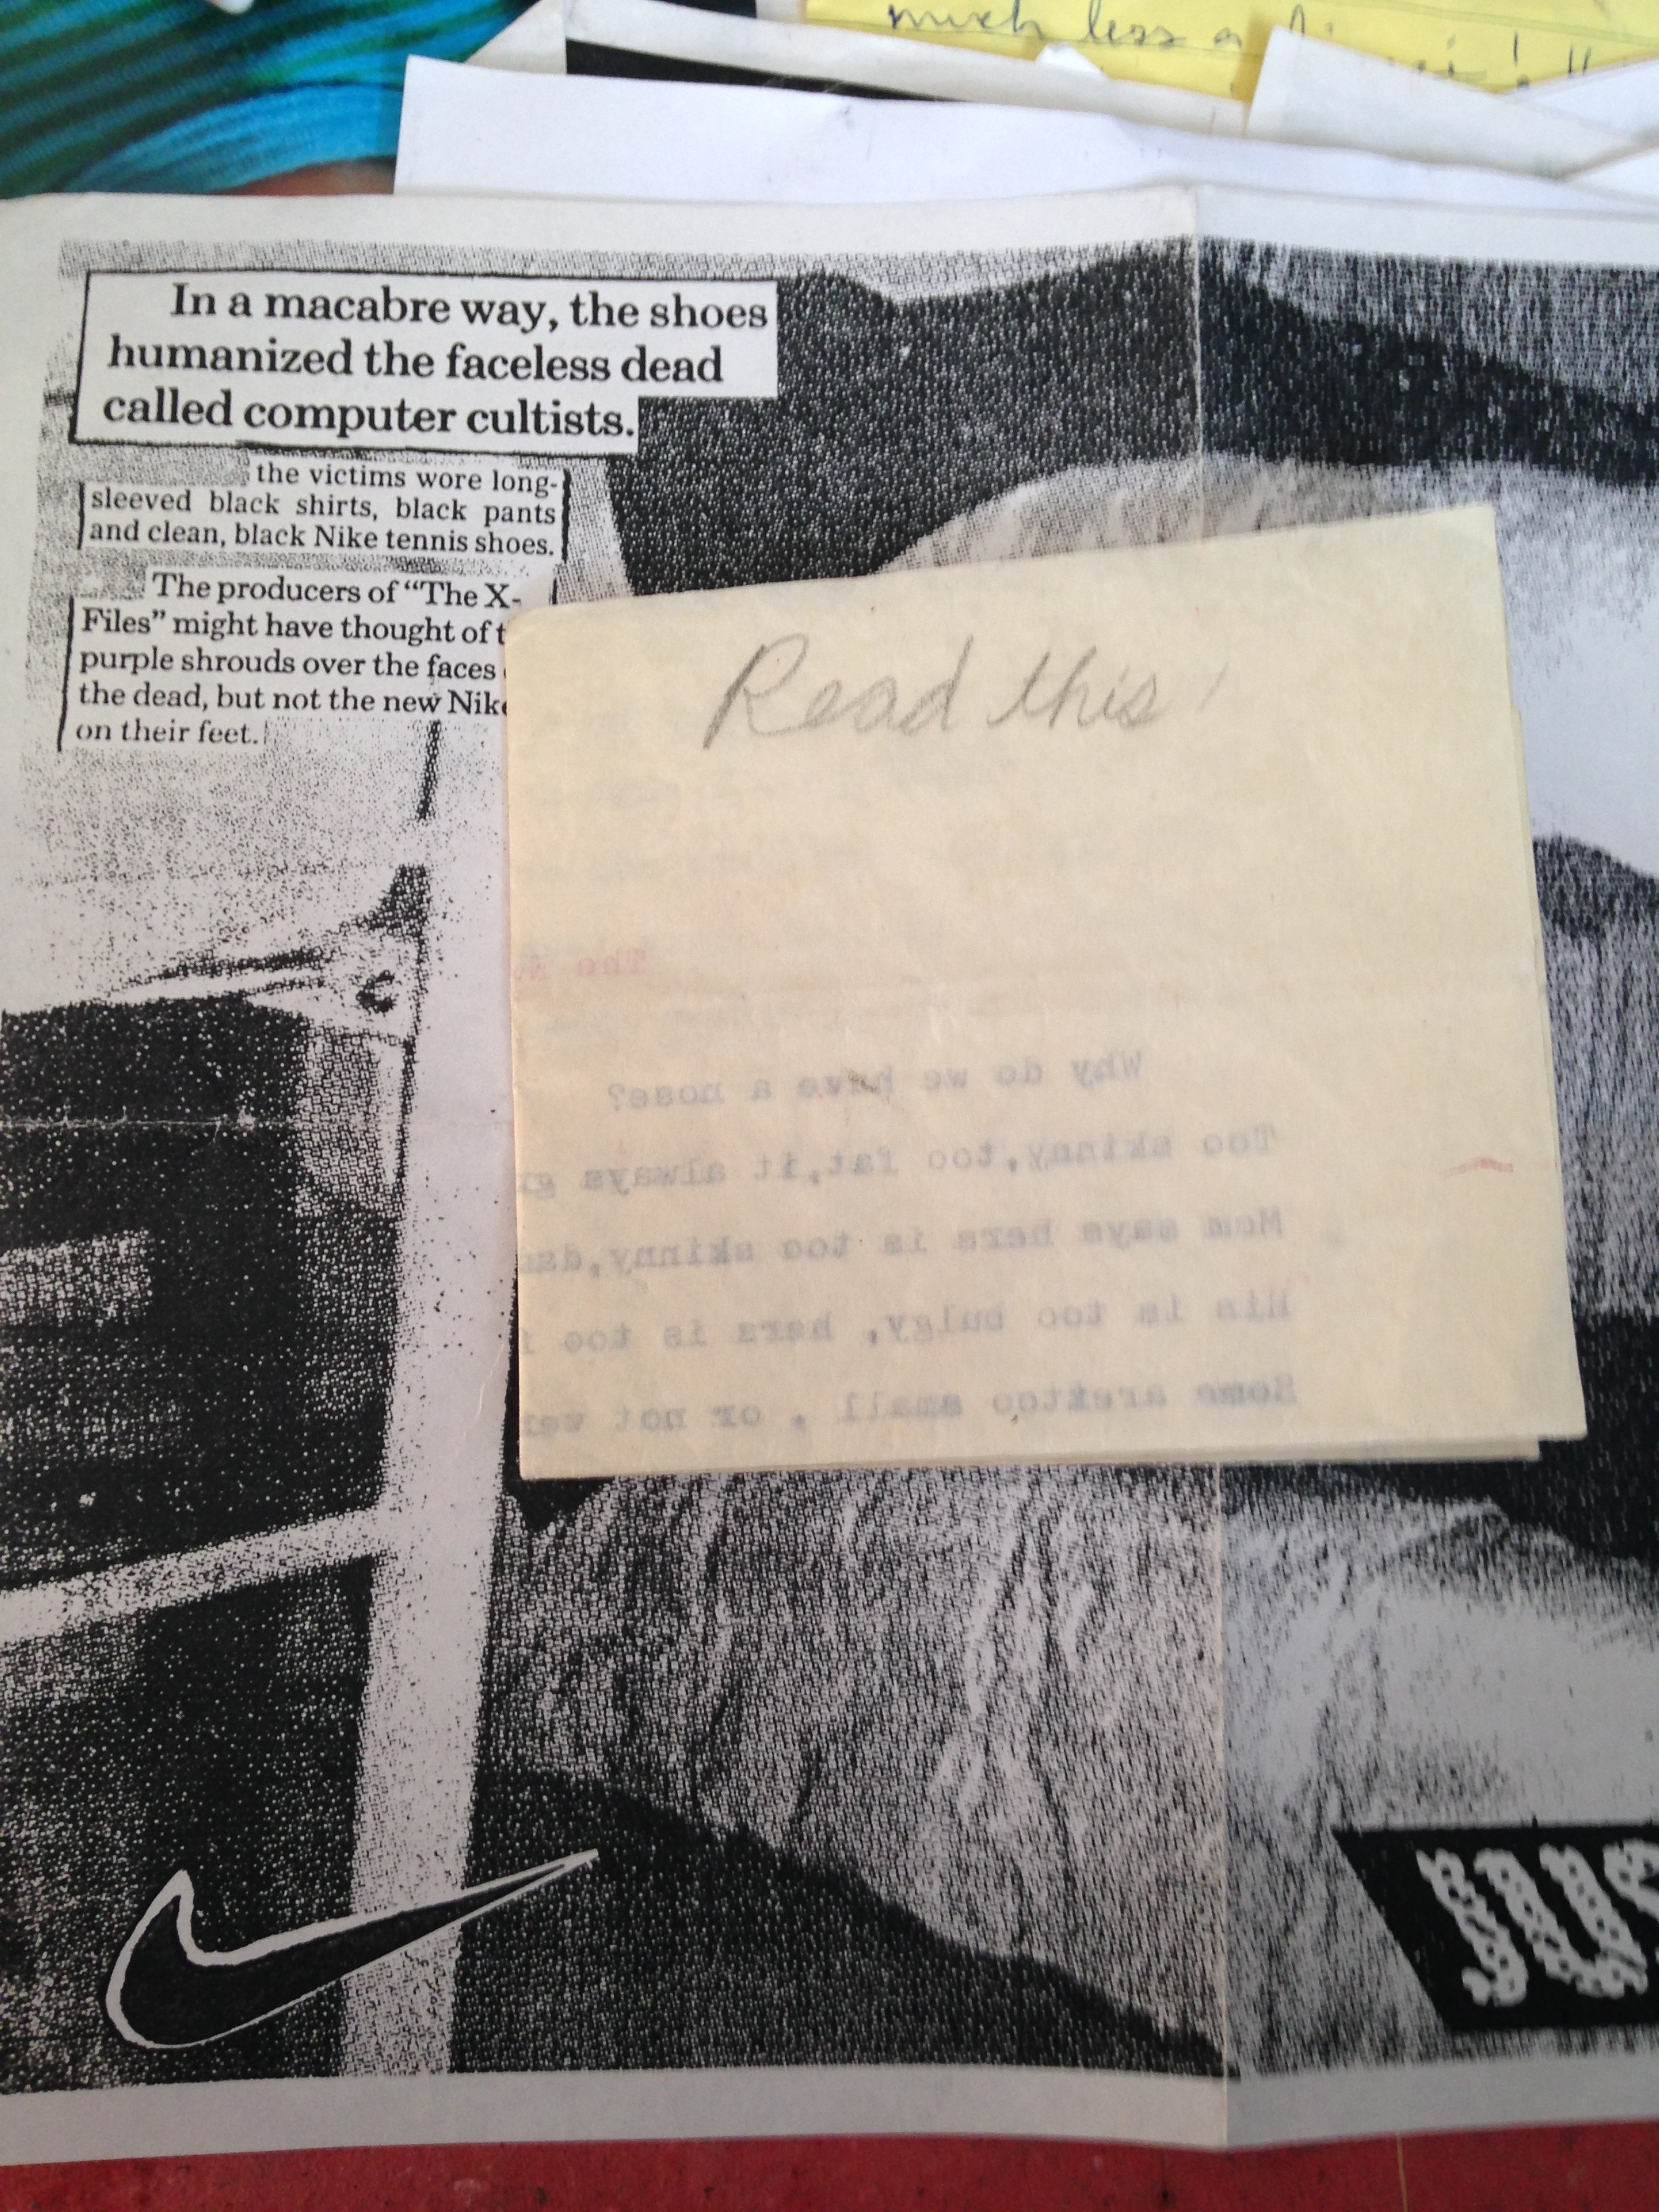 much less a
In a macabre way, the shoes
humanized the faceless dead
called computer cultists.
the victims wore long-
sleeved black shirts, black pants
and clean, black Nike tennis shoes.
The producers of “The X-
Files” might have thought of t
purple shrouds over the faces
the dead, but not the new Nike
on their feet.
Read this!
The
Why do we have a nose?
Too skinny,too fat,it always
Mom says hers is too skinny,
His is too bulgy, hers is too
Some are too small , or not
JUS